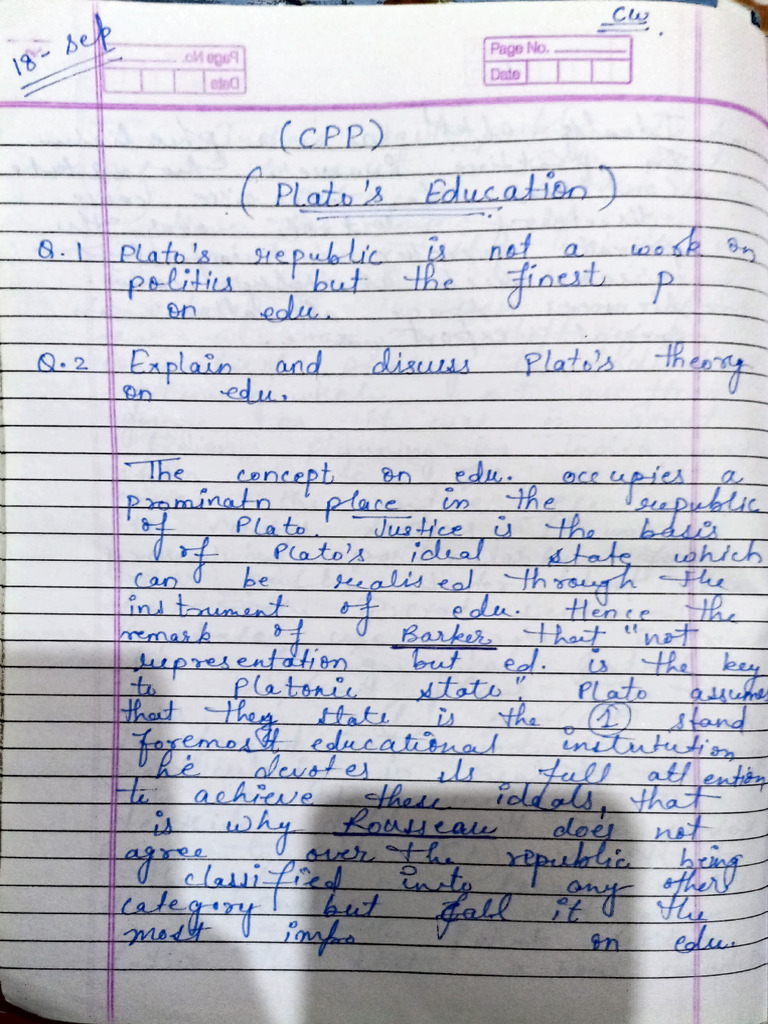 Cw.
18- Sep
Page No.
Date
Page No.
Date
(CPP)
(Plato's Education)
Q.1 Plato's republic is not a work on
politics but the finest p
on edu.
Q.2 Explain and discuss Plato's theory
on edu.
The concept on edu. occupies a
prominatn place in the republic
of Plato. Justice is the basis
of Plato's ideal state which
can be realised through the
instrument of edu. Hence the
remark of Barker that "not
representation but ed. is the key
to Platonic state". Plato assumes
that they state is the 1 stand
foremost educational instutution
he devotes its full attention
to achieve these ideals, that
is why Rousseau does not
agree over the republic being
classified into any other
category but call it the
most impo on edu.